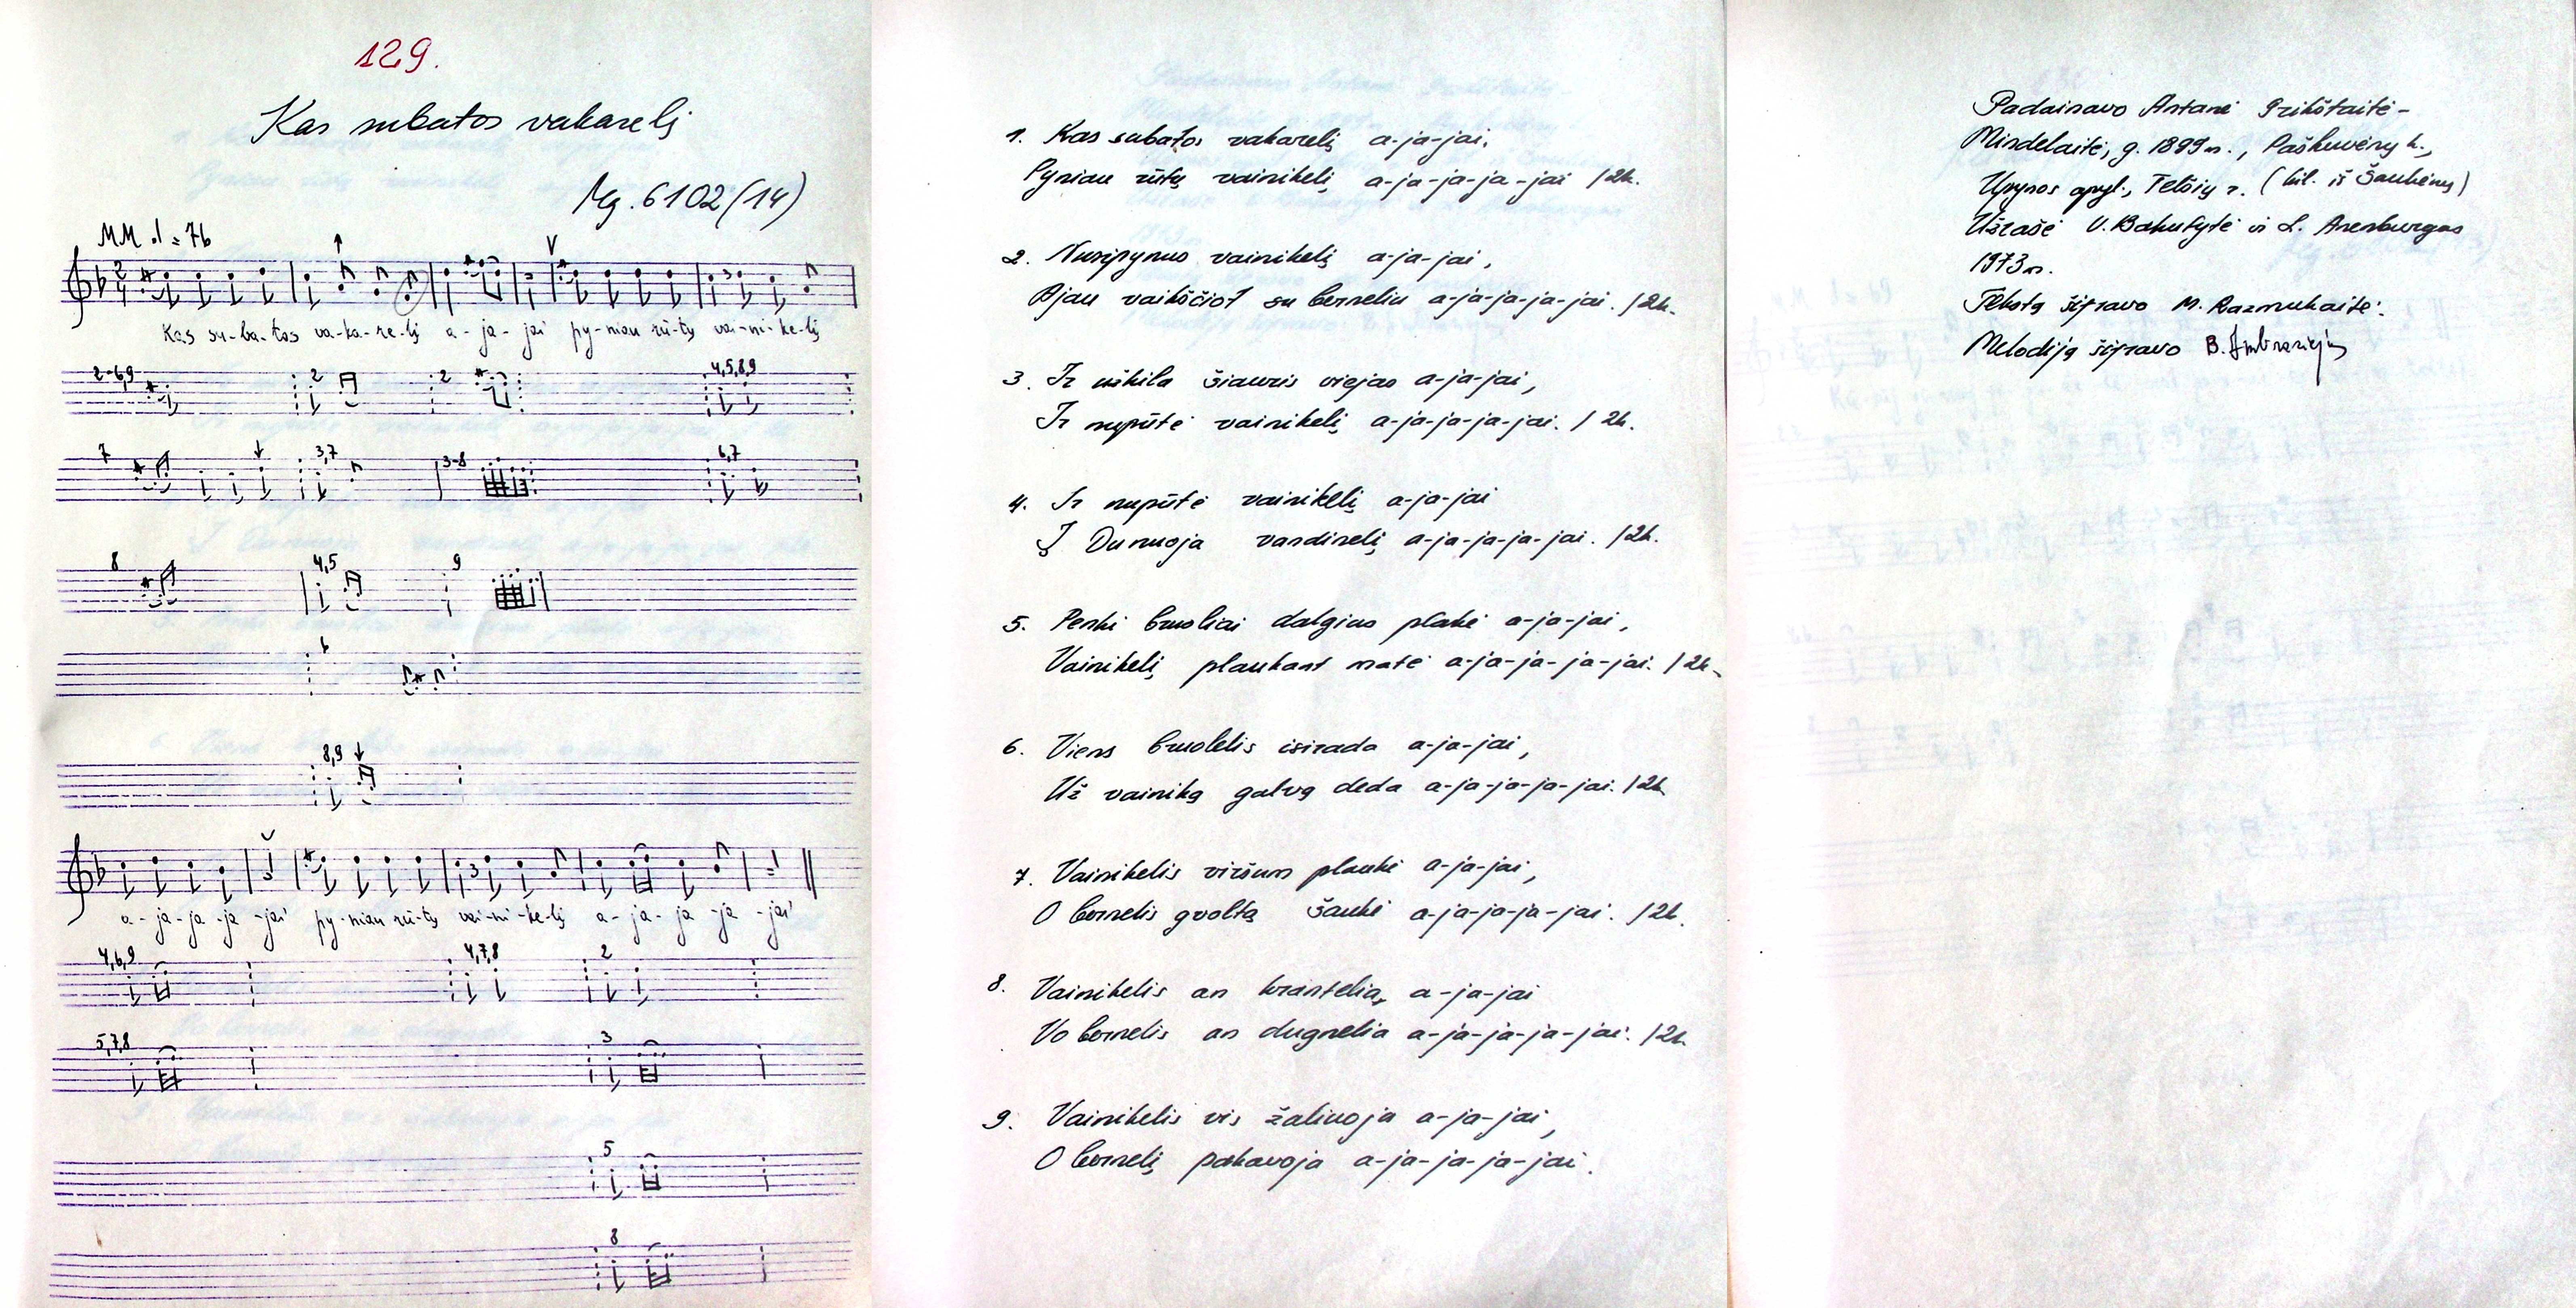 129.
Kas subatos vakarelį
Mg. 6102 (14)
MM ♩ = 76
Kas su-ba-tos va-ka-re-lį a-ja-jai py-niau rū-tų vai-ni-ke-lį
2-6,9 2 2 4,5,8,9
7 3,7 3-8 6,7
8 4,5 9
6
8,9
a-ja-ja-ja-jai py-niau rū-tų vai-ni-ke-lį a-ja-ja-ja-jai
4,6,9 4,7,8 2
5,7,8 3
5
8
1. Kas subatos vakarelį a-ja-jai,
Pyniau rūtų vainikelį a-ja-ja-ja-jai /2k.
2. Nusipynus vainikelį a-ja-jai,
Ajau vaikščiot su berneliu a-ja-ja-ja-jai. /2k.
3. Ir užkila šiauris viejas a-ja-jai,
Ir nupūtė vainikelį a-ja-ja-ja-jai. /2k.
4. Ir nupūtė vainikelį a-ja-jai
Į Dunuoja vandinelį a-ja-ja-ja-jai. /2k.
5. Penki bruoliai dalgius plakė a-ja-jai,
Vainikelį plaukant matė a-ja-ja-ja-jai. /2k.
6. Viens bruolelis isirada a-ja-jai,
Už vainiką galvą deda a-ja-ja-ja-jai. /2k.
7. Vainikelis viršum plaukė a-ja-jai,
O bernelis gvolta šaukė a-ja-ja-ja-jai. /2k.
8. Vainikelis an krantelia, a-ja-jai
Vo bernelis an dugnelia a-ja-ja-ja-jai. /2k.
9. Vainikelis vis žaliuoja a-ja-jai,
O bernelį pakavoja a-ja-ja-ja-jai.
Padainavo Antanė Grikštaitė-
Mindelaitė, g. 1899 m., Paškuvėnų k.,
Upynos apyl., Telšių r. (kil. iš Šaukėnų)
Užrašė V. Bakutytė ir L. Arenburgas
1973 m.
Tekstą šifravo M. Razmukaitė.
Melodiją šifravo B. Ambraziejus